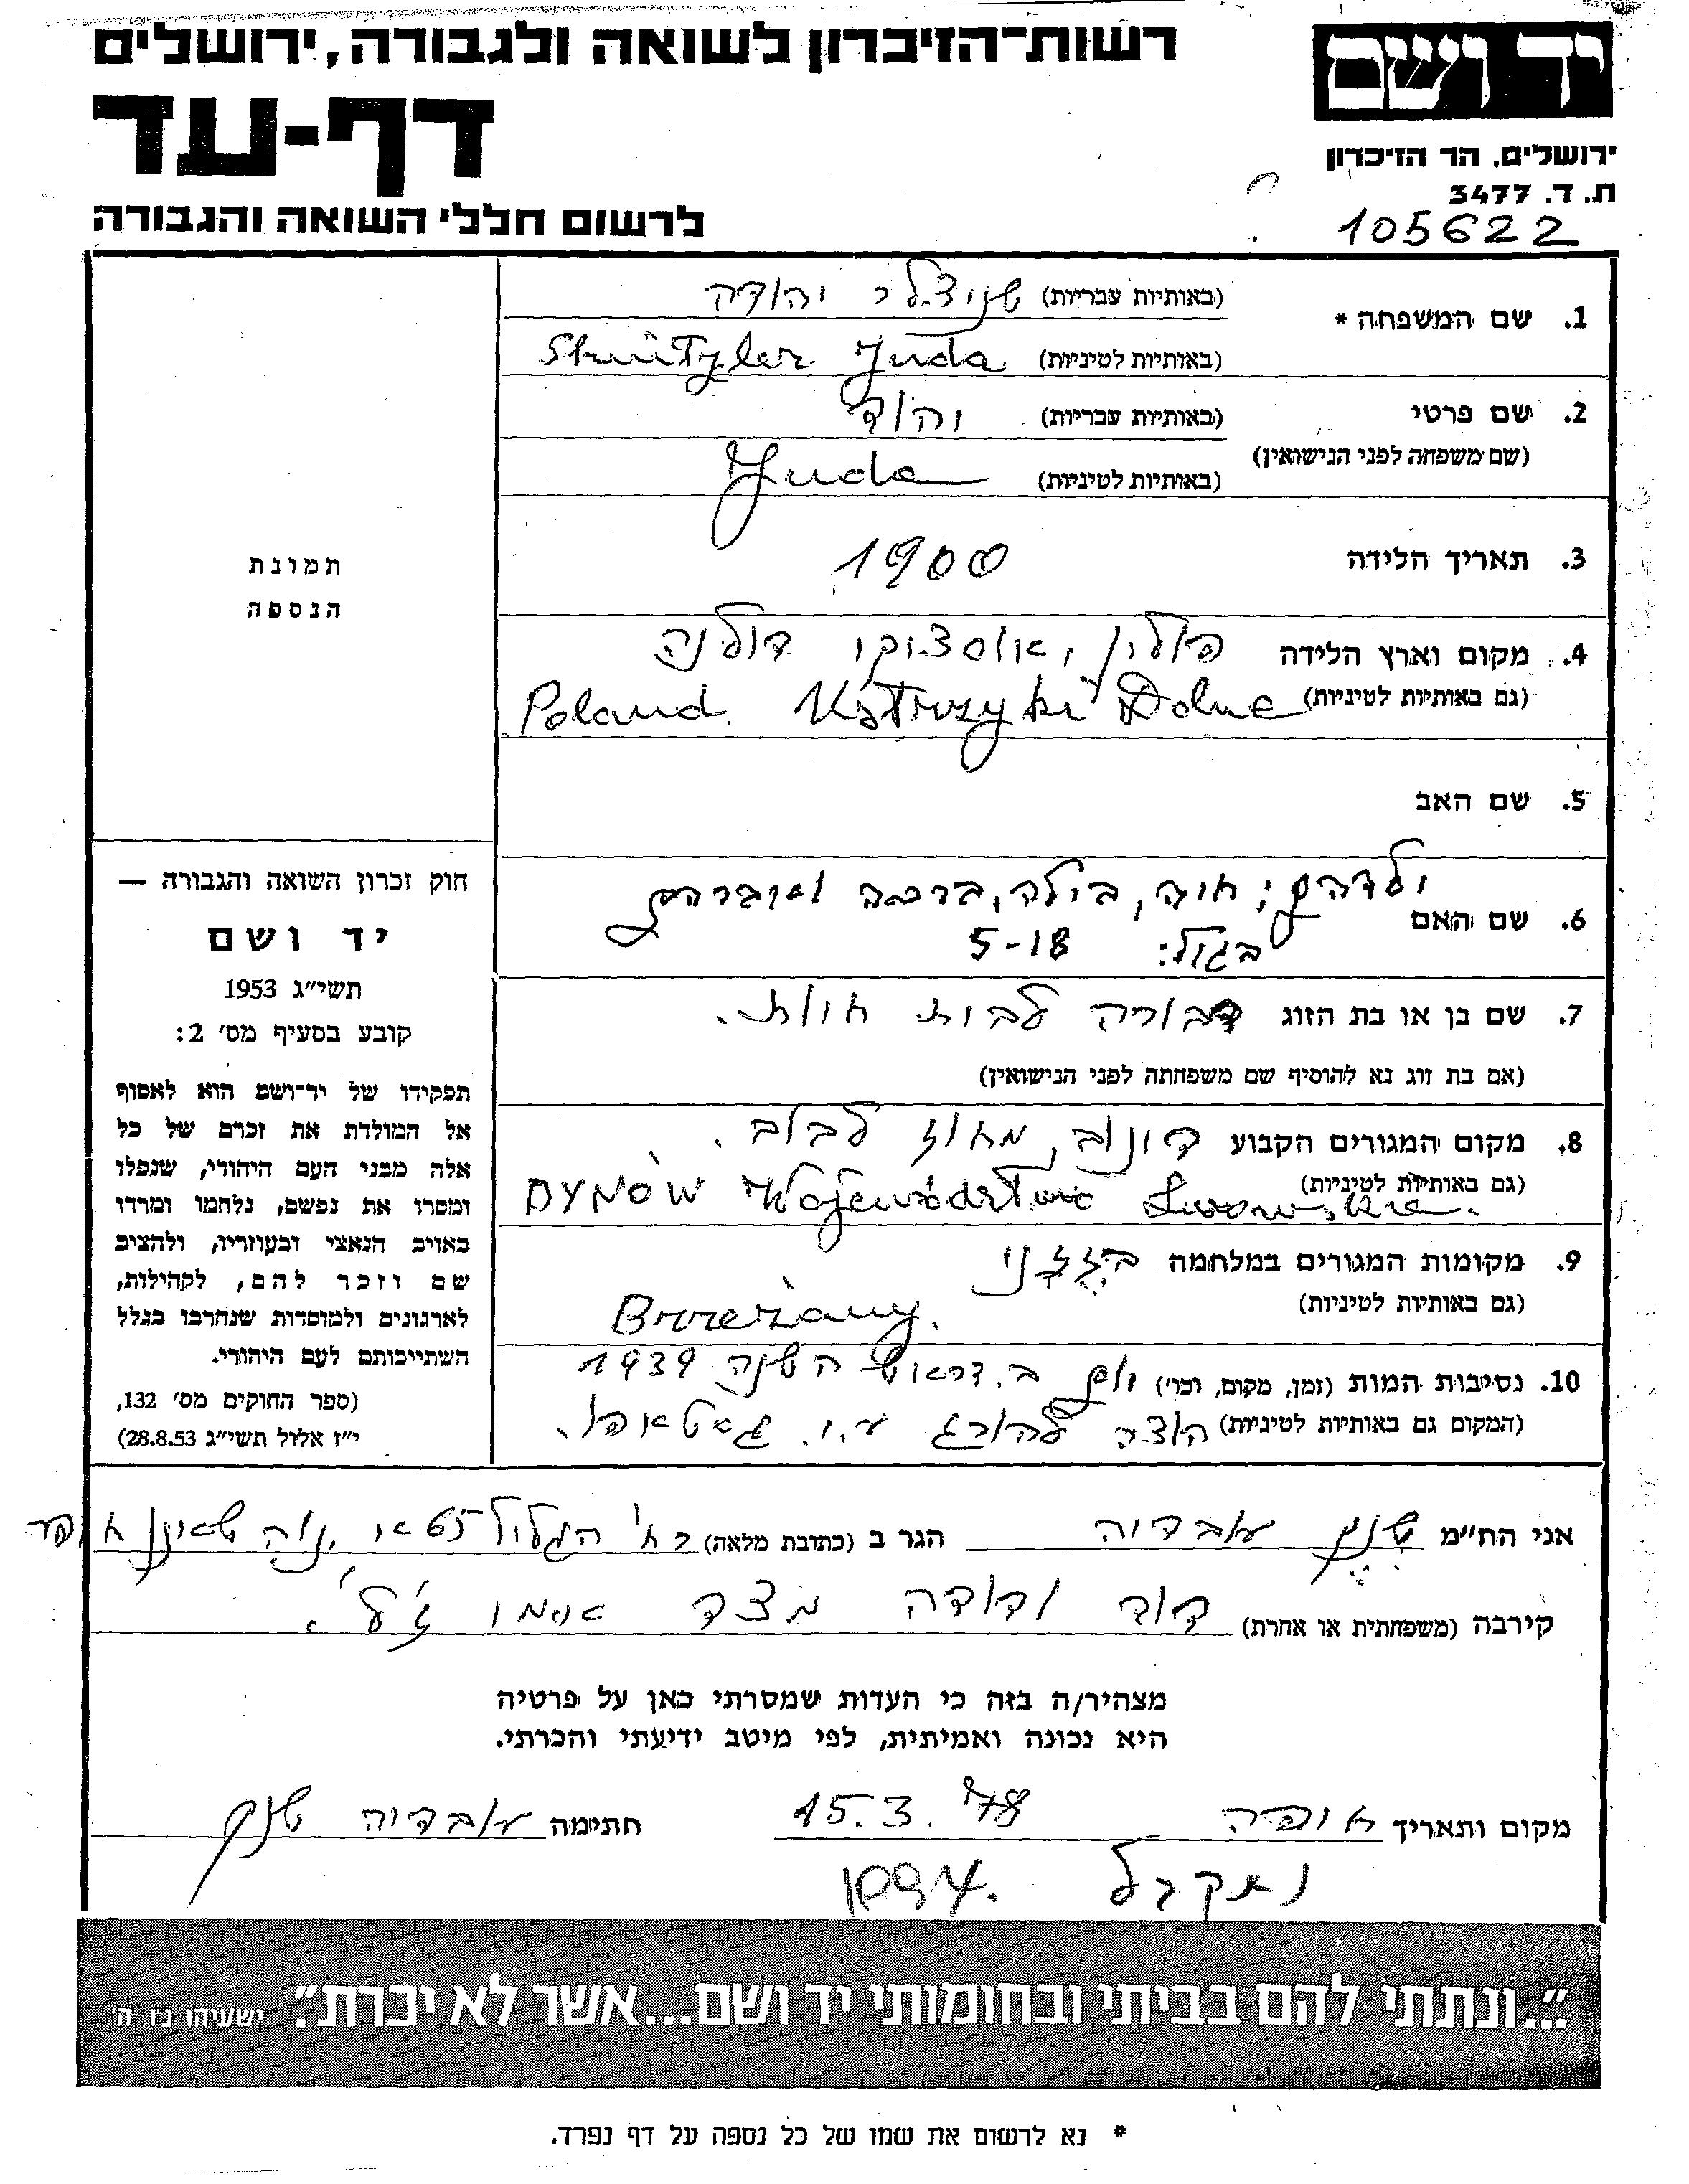 רשות-הזיכרון לשואה ולגבורה, ירושלים
יד ושם
דף-עד
ירושלים, הר הזיכרון
ת. ד. 3477
לרשום חללי השואה והגבורה
105622
1. שם המשפחה *
(באותיות עבריות) שניצלר יהודה
(באותיות לטיניות) Shnitzler Juda
2. שם פרטי
(באותיות עבריות)
(שם משפחה לפני הנישואין)
(באותיות לטיניות) Juda
3. תאריך הלידה 1900
4. מקום וארץ הלידה פולין, דולנה
(גם באותיות לטיניות) Poland. Dolne
5. שם האב
6. שם האם
ילדיהם: חיה, בילה, ברכה ואברהם
בגיל: 5-18
7. שם בן או בת הזוג דבורה לבית
(אם בת זוג נא להוסיף שם משפחתה לפני הנישואין)
8. מקום המגורים הקבוע דינוב, מחוז לבוב.
(גם באותיות לטיניות) DYNÓW Województwo Lwowskie.
9. מקומות המגורים במלחמה
(גם באותיות לטיניות) Brzeżany.
10. נסיבות המות (זמן, מקום, וכו') ב. דראש השנה 1939
(המקום גם באותיות לטיניות) הוצא להורג ע.י. גסטאפו.
תמונת
הנספה
חוק זכרון השואה והגבורה —
יד ושם
תשי״ג 1953
קובע בסעיף מס׳ 2:
תפקידו של יד־ושם הוא לאסוף
אל המולדת את זכרם של כל
אלה מבני העם היהודי, שנפלו
ומסרו את נפשם, נלחמו ומרדו
באויב הנאצי ובעוזריו, ולהציב
שם וזכר להם, לקהילות,
לארגונים ולמוסדות שנחרבו בגלל
השתייכותם לעם היהודי.
(ספר החוקים מס׳ 132,
י״ז אלול תשי״ג 28.8.53)
אני הח״מ שנק עובדיה הגר ב (כתובת מלאה) רח' הגליל נוה שאנן חיפה
קירבה (משפחתית או אחרת) דוד יהודה מצד אימו ז"ל.
מצהיר/ה בזה כי העדות שמסרתי כאן על פרטיה
היא נכונה ואמיתית, לפי מיטב ידיעתי והכרתי.
מקום ותאריך חיפה 15.3.78 חתימה עובדיה שנק
נתקבל
״...ונתתי להם בביתי ובחומותי יד ושם...אשר לא יכרת״. ישעיהו נ״ו, ה׳
* נא לרשום את שמו של כל נספה על דף נפרד.